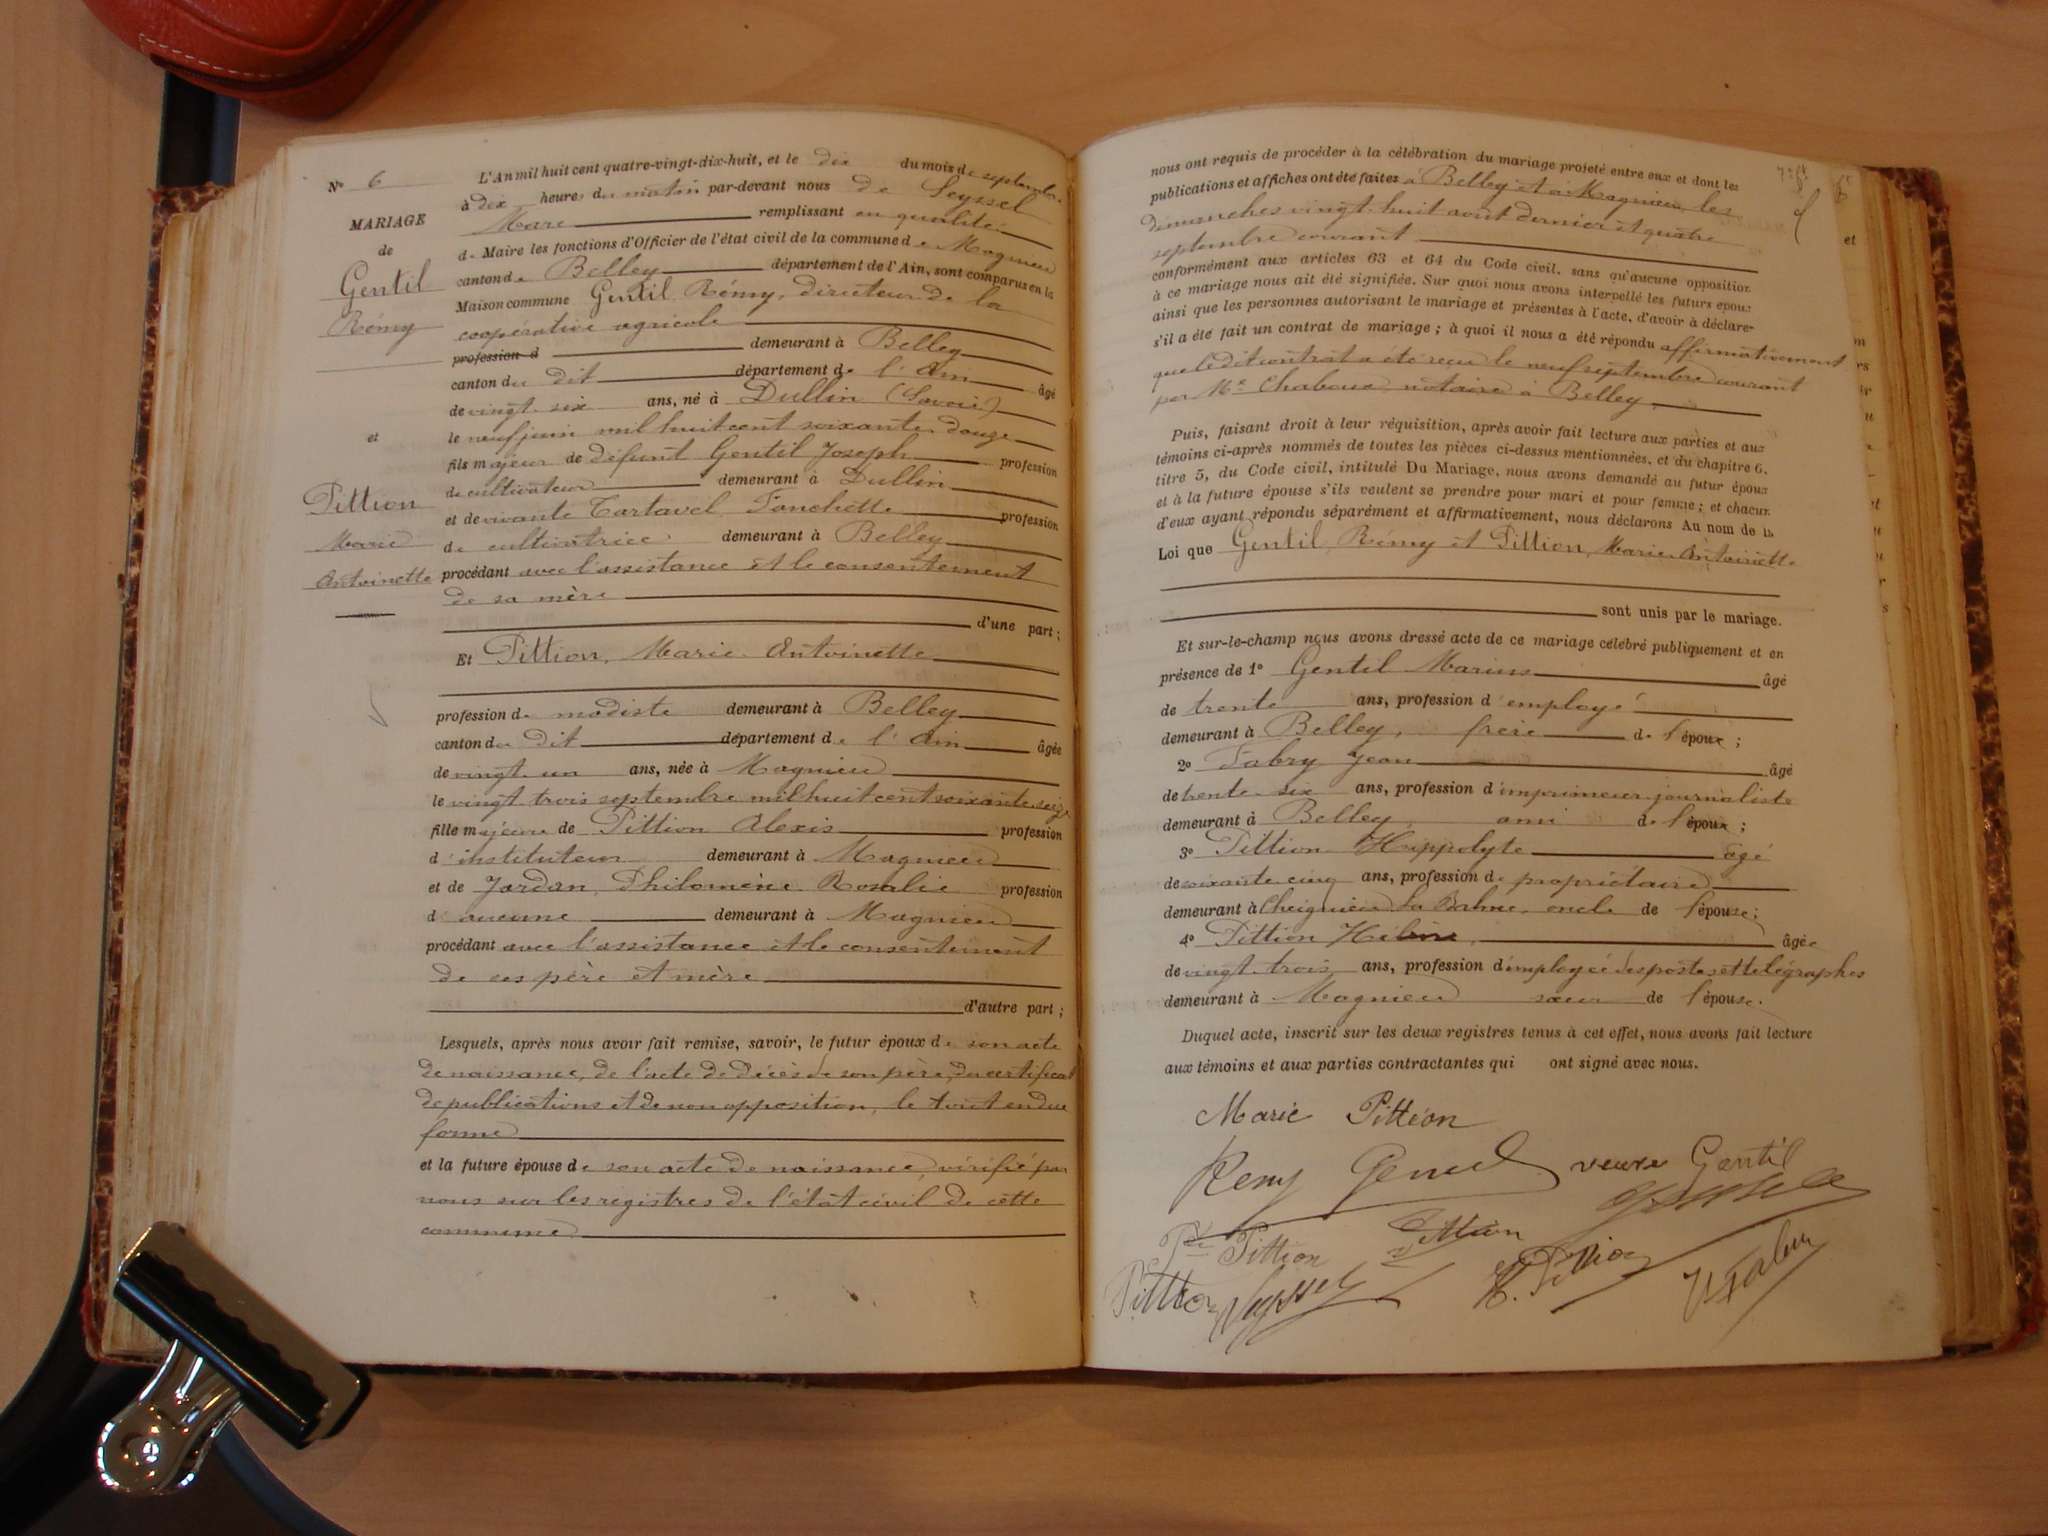 N° 6
MARIAGE
de
Gentil
Rémy
et
Pittion
Marie
Antoinette
L'An mil huit cent quatre-vingt-dix-huit, et le dix du mois de septembre
à dix heures du matin par-devant nous de Seyssel
Marc remplissant en qualité
de Maire les fonctions d'Officier de l'état civil de la commune de Magnieu
canton de Belley département de l'Ain, sont comparus en la
Maison commune Gentil Rémy, directeur de la
coopérative agricole
profession d demeurant à Belley
canton du dit département de l'Ain âgé
de vingt six ans, né à Dullin (Savoie)
le neuf juin mil huit cent soixante douze
fils majeur de défunt Gentil Joseph profession
de cultivateur demeurant à Dullin
et de vivante Tartavel Fanchette profession
de cultivatrice demeurant à Belley
procédant avec l'assistance et le consentement
de sa mère
d'une part ;
Et Pittion, Marie Antoinette
profession de modiste demeurant à Belley
canton du dit département de l'Ain âgée
de vingt un ans, née à Magnieu
le vingt trois septembre mil huit cent soixante seize
fille majeure de Pittion Alexis profession
d'instituteur demeurant à Magnieu
et de Jordan, Philomène Rosalie profession
d'aucune demeurant à Magnieu
procédant avec l'assistance et le consentement
de ses père et mère
d'autre part ;
Lesquels, après nous avoir fait remise, savoir, le futur époux de son acte
de naissance, de l'acte de décès de son père, du certificat
de publications et de non opposition, le tout en due
forme
et la future épouse de son acte de naissance, vérifié par
nous sur les registres de l'état civil de cette
commune
nous ont requis de procéder à la célébration du mariage projeté entre eux et dont les
publications et affiches ont été faites à Belley et à Magnieu, les
dimanches vingt-huit août dernier et quatre
septembre courant
conformément aux articles 63 et 64 du Code civil, sans qu'aucune opposition
à ce mariage nous ait été signifiée. Sur quoi nous avons interpellé les futurs époux
ainsi que les personnes autorisant le mariage et présentes à l'acte, d'avoir à déclare-
s'il a été fait un contrat de mariage ; à quoi il nous a été répondu affirmativement
que le dit contrat a été reçu le neuf septembre courant
par Me Chaboux notaire à Belley
Puis, faisant droit à leur réquisition, après avoir fait lecture aux parties et aux
témoins ci-après nommés de toutes les pièces ci-dessus mentionnées, et du chapitre 6,
titre 5, du Code civil, intitulé Du Mariage, nous avons demandé au futur époux
et à la future épouse s'ils veulent se prendre pour mari et pour femme ; et chacun
d'eux ayant répondu séparément et affirmativement, nous déclarons Au nom de la
Loi que Gentil, Rémy et Pittion, Marie Antoinette
sont unis par le mariage.
Et sur-le-champ nous avons dressé acte de ce mariage célébré publiquement et en
présence de 1° Gentil Marius âgé
de trente ans, profession d'employé
demeurant à Belley, frère de l'époux ;
2° Fabry Jean âgé
de trente-six ans, profession d'imprimeur journaliste
demeurant à Belley, ami de l'époux ;
3° Pittion Hippolyte âgé
de soixante cinq ans, profession de propriétaire
demeurant à Cheignieu La Balme, oncle de l'épouse ;
4° Pittion Hélène, âgée
de vingt-trois ans, profession d'employée des postes et télégraphes
demeurant à Magnieu sœur de l'épouse.
Duquel acte, inscrit sur les deux registres tenus à cet effet, nous avons fait lecture
aux témoins et aux parties contractantes qui ont signé avec nous.
Marie Pittion
Remy Gentil veuve Gentil
Pittion Pittion
Pittion Seyssel H. Pittion J Fabry